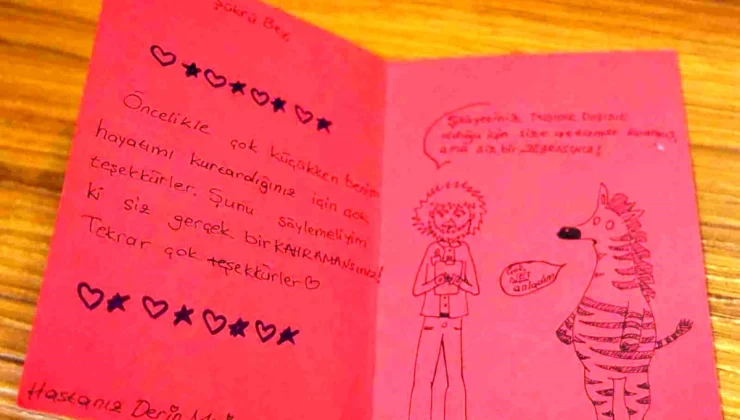 Şükrü Bey,
Öncelikle çok küçükken benim
hayatımı kurtardığınız için çok
teşekkürler. Şunu söylemeliyim
ki siz gerçek bir KAHRAMANsınız!
Tekrar çok teşekkürler
Hastanız Derin
olduğu için size
ama siz bir ZEBRASINIZ!
anladım